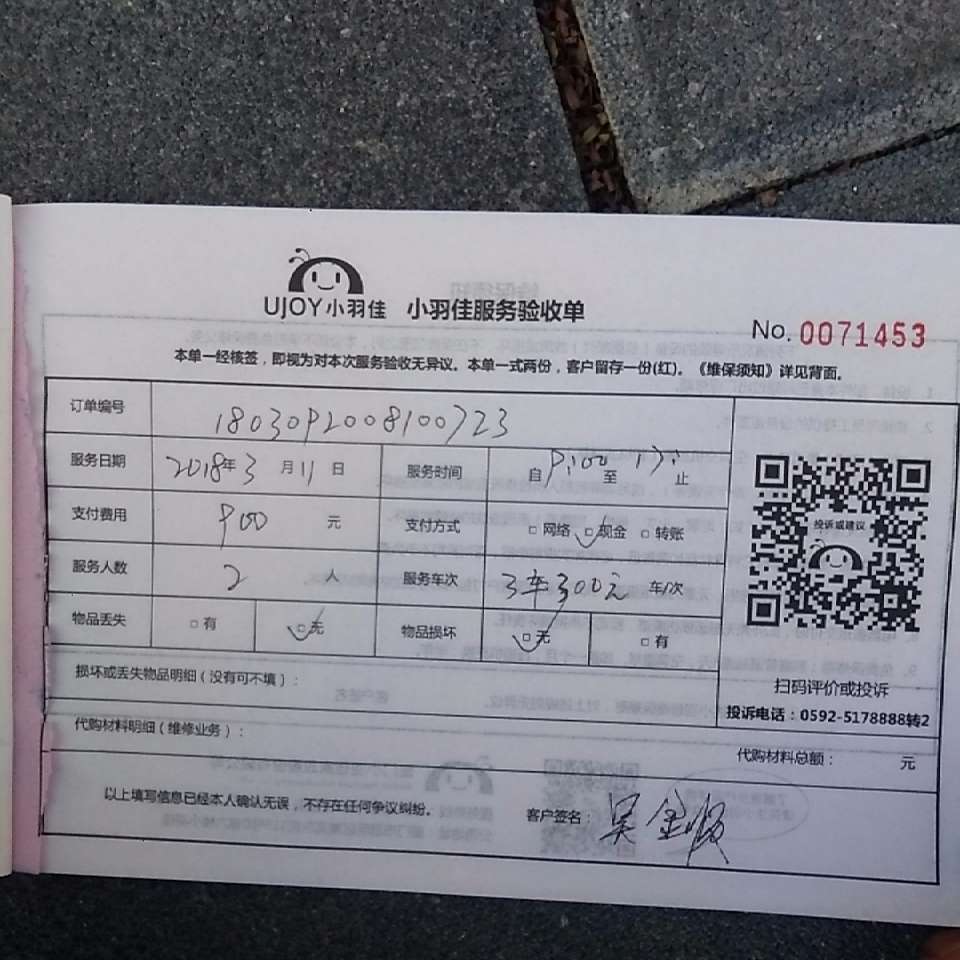 UJOY小羽佳 小羽佳服务验收单
No. 0071453
本单一经核签，即视为对本次服务验收无异议。本单一式两份，客户留存一份(红)。《维保须知》详见背面。
订单编号 18030912008100723
服务日期 2018年3月11日 服务时间 自 至 止
支付费用 900 元 支付方式 □网络 □现金 □转账
服务人数 2 人 服务车次 3车300元 车/次
物品丢失 □有 □无 物品损坏 □无 □有
投诉或建议
扫码评价或投诉
投诉电话：0592-5178888转2
损坏或丢失物品明细（没有可不填）：
代购材料明细（维修业务）：
代购材料总额： 元
以上填写信息已经本人确认无误，不存在任何争议纠纷。 客户签名：吴金